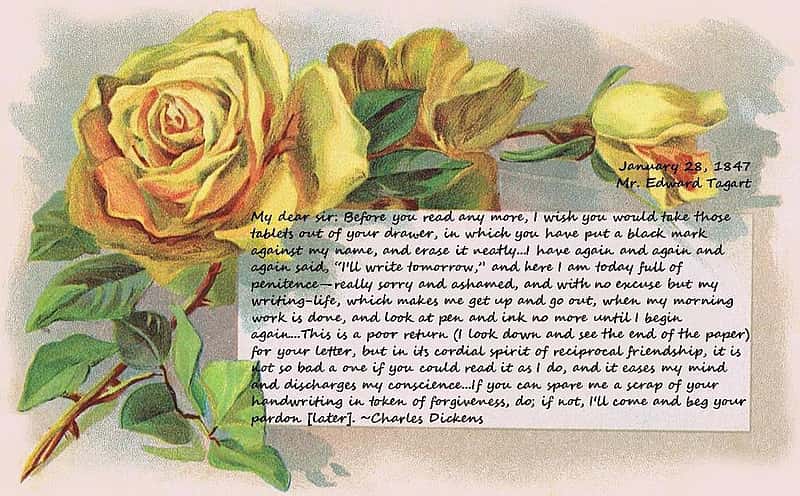 January 28, 1847
Mr. Edward Tagart
My dear sir: Before you read any more, I wish you would take those
tablets out of your drawer, in which you have put a black mark
against my name, and erase it neatly...I have again and again and
again said, “I'll write tomorrow,” and here I am today full of
penitence—really sorry and ashamed, and with no excuse but my
writing-life, which makes me get up and go out, when my morning
work is done, and look at pen and ink no more until I begin
again....This is a poor return (I look down and see the end of the paper)
for your letter, but in its cordial spirit of reciprocal friendship, it is
not so bad a one if you could read it as I do, and it eases my mind
and discharges my conscience...If you can spare me a scrap of your
handwriting in token of forgiveness, do; if not, I'll come and beg your
pardon [later]. ~Charles Dickens